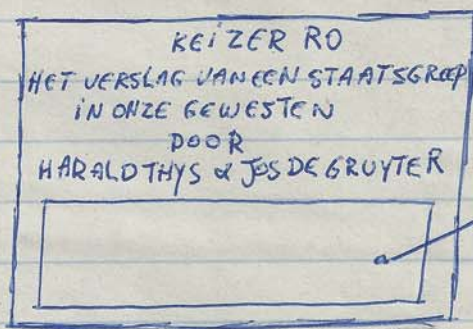 KEIZER RO
HET VERSLAG VAN EEN STAATSGREEP
IN ONZE GEWESTEN
DOOR
HARALD THYS & JOS DE GRUYTER
a